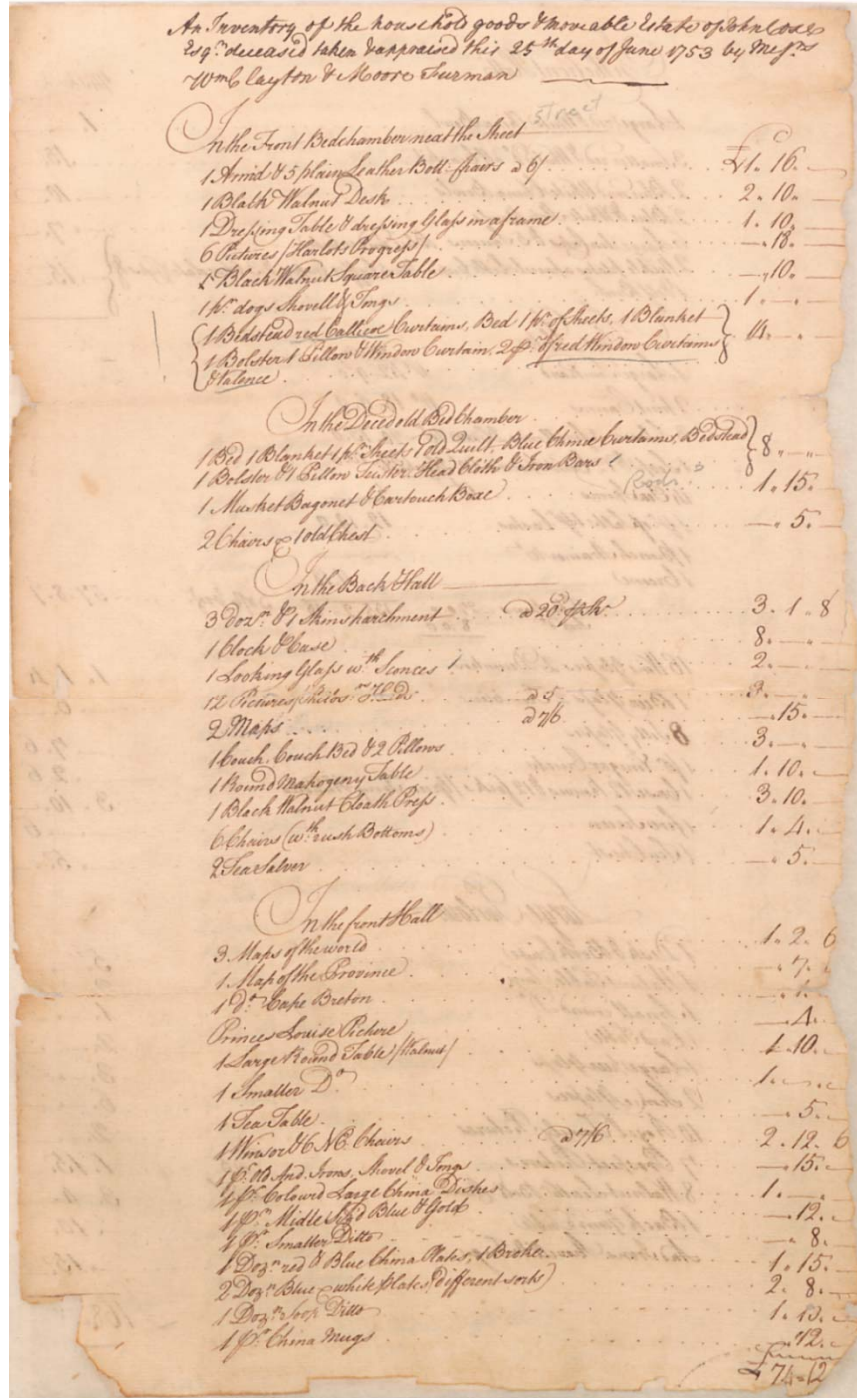 An Inventory of the household goods & moveable Estate of John Coxe
Esqr. deceased taken & appraised this 25th day of June 1753 by Messrs
Wm Clayton & Moore Furman
street
In the Front Bedchamber neat the Street
1 Armd & 5 plain Leather Bott. Chairs a 6/ £1. 16. —
1 Black Walnut Desk 2. 10.
1 Dressing Table & dressing Glass in a frame 1. 10.
6 Pictures /Harlots Progress/ —. 18.
1 Black Walnut Square Table —. 10.
1 pr. dogs Shovell & Tongs 1. — —
1 Bedstead red Callicoe Curtains, Bed 1 pr. of Sheets, 1 Blanket
1 Bolster 1 Pillow & Window Curtain, 2 pr. of red Window Curtains 14. — —
& Valence
In the Decd old Bed Chamber
1 Bed 1 Blanket 1 pr. Sheets 1 old Quilt, Blue Curtains, Bedstead 8. — —
1 Bolster & 1 Pillow Tester, Head Cloth & Iron Bars
Rods
1 Musket Bagonet & Cartouch Boxe 1. 15.
2 Chairs & 1 old Chest —. 5. —
In the Back Hall
3 dozn. & 1 Skins parchment a 20d. pr Sk. 3. 1. 8
1 Clock & Case 8. — —
1 Looking Glass wth Sconces 2. — —
12 Pictures a 5/. 3. — —
2 Maps a 7/6 —. 15. —
1 Couch, Couch Bed & 2 Pillows 3. — —
1 Round Mahogeny Table 1. 10. —
1 Black Walnut Cloath Press 3. 10. —
6 Chairs (wth rush Bottoms) 1. 4. —
2 Tea Salver —. 5. —
In the front Hall
3 Maps of the world 1. 2. 6
1 Map of the Province —. 7.
1 do. Cape Breton —. 1.
Prince Louise Picture —. 4.
1 Large Round Table /Walnut/ 1. 10.
1 Smaller Do. 1. —
1 Tea Table —. 5. —
1 Winsor & 6 Chairs a 7/6 2. 12. 6
1 pr. old And. Irons, Shovel & Tongs —. 15. —
4 pr. Colourd Large China Dishes 1. — —
1 pr. Midle Sizd Blue & Gold —. 12. —
4 pr. Smaller Ditto —. 8. —
1 Dozn red & Blue China Plates, 1 Broke 1. 15. —
2 Dozn Blue & white plates (different sorts) 2. 8. —
1 Dozn Soop Ditto 1. —
1 pr. China Mugs —. 12. —
£ 74. 12